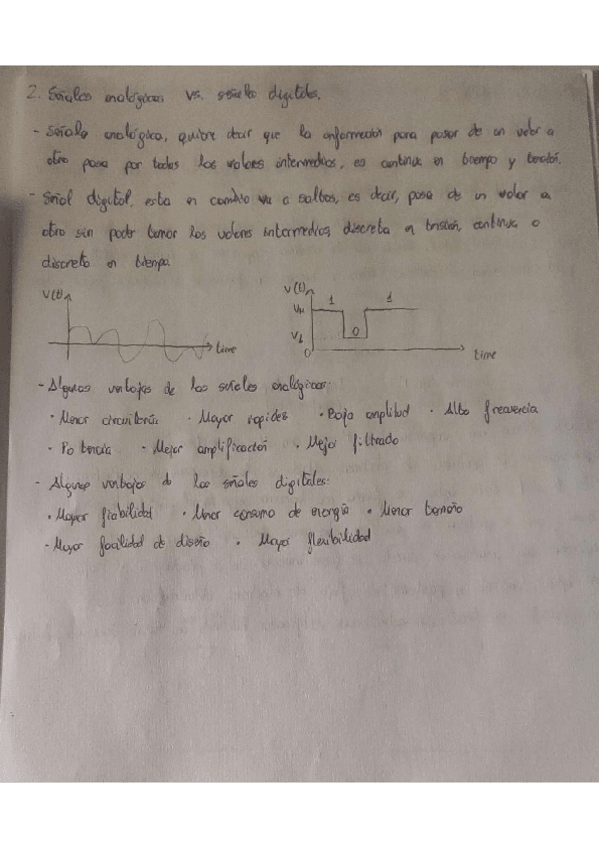 2. Señales analógicas vs. señales digitales.
- Señale analógica, quiere decir que la información para pasar de un valor a
otro pasa por todos los valores intermedios, es continua en tiempo y tensión.
- Señal digital, esta en cambio va a saltos, es decir, pasa de un valor a
otro sin poder tomar los valores intermedios discreta en tensión, continua o
discreta en tiempo.
V(t)
time
V(t)
VH 1 1
VL 0
0
time
- Algunas ventajas de las señales analógicas:
· Menor circuitería · Mayor rapidez · Baja amplitud · Alta frecuencia
· Potencia · Mejor amplificación · Mejor filtrado
- Algunas ventajas de las señales digitales:
· Mayor fiabilidad · Menor consumo de energía · Menor tamaño
- Mayor facilidad de diseño · Mayor flexibilidad